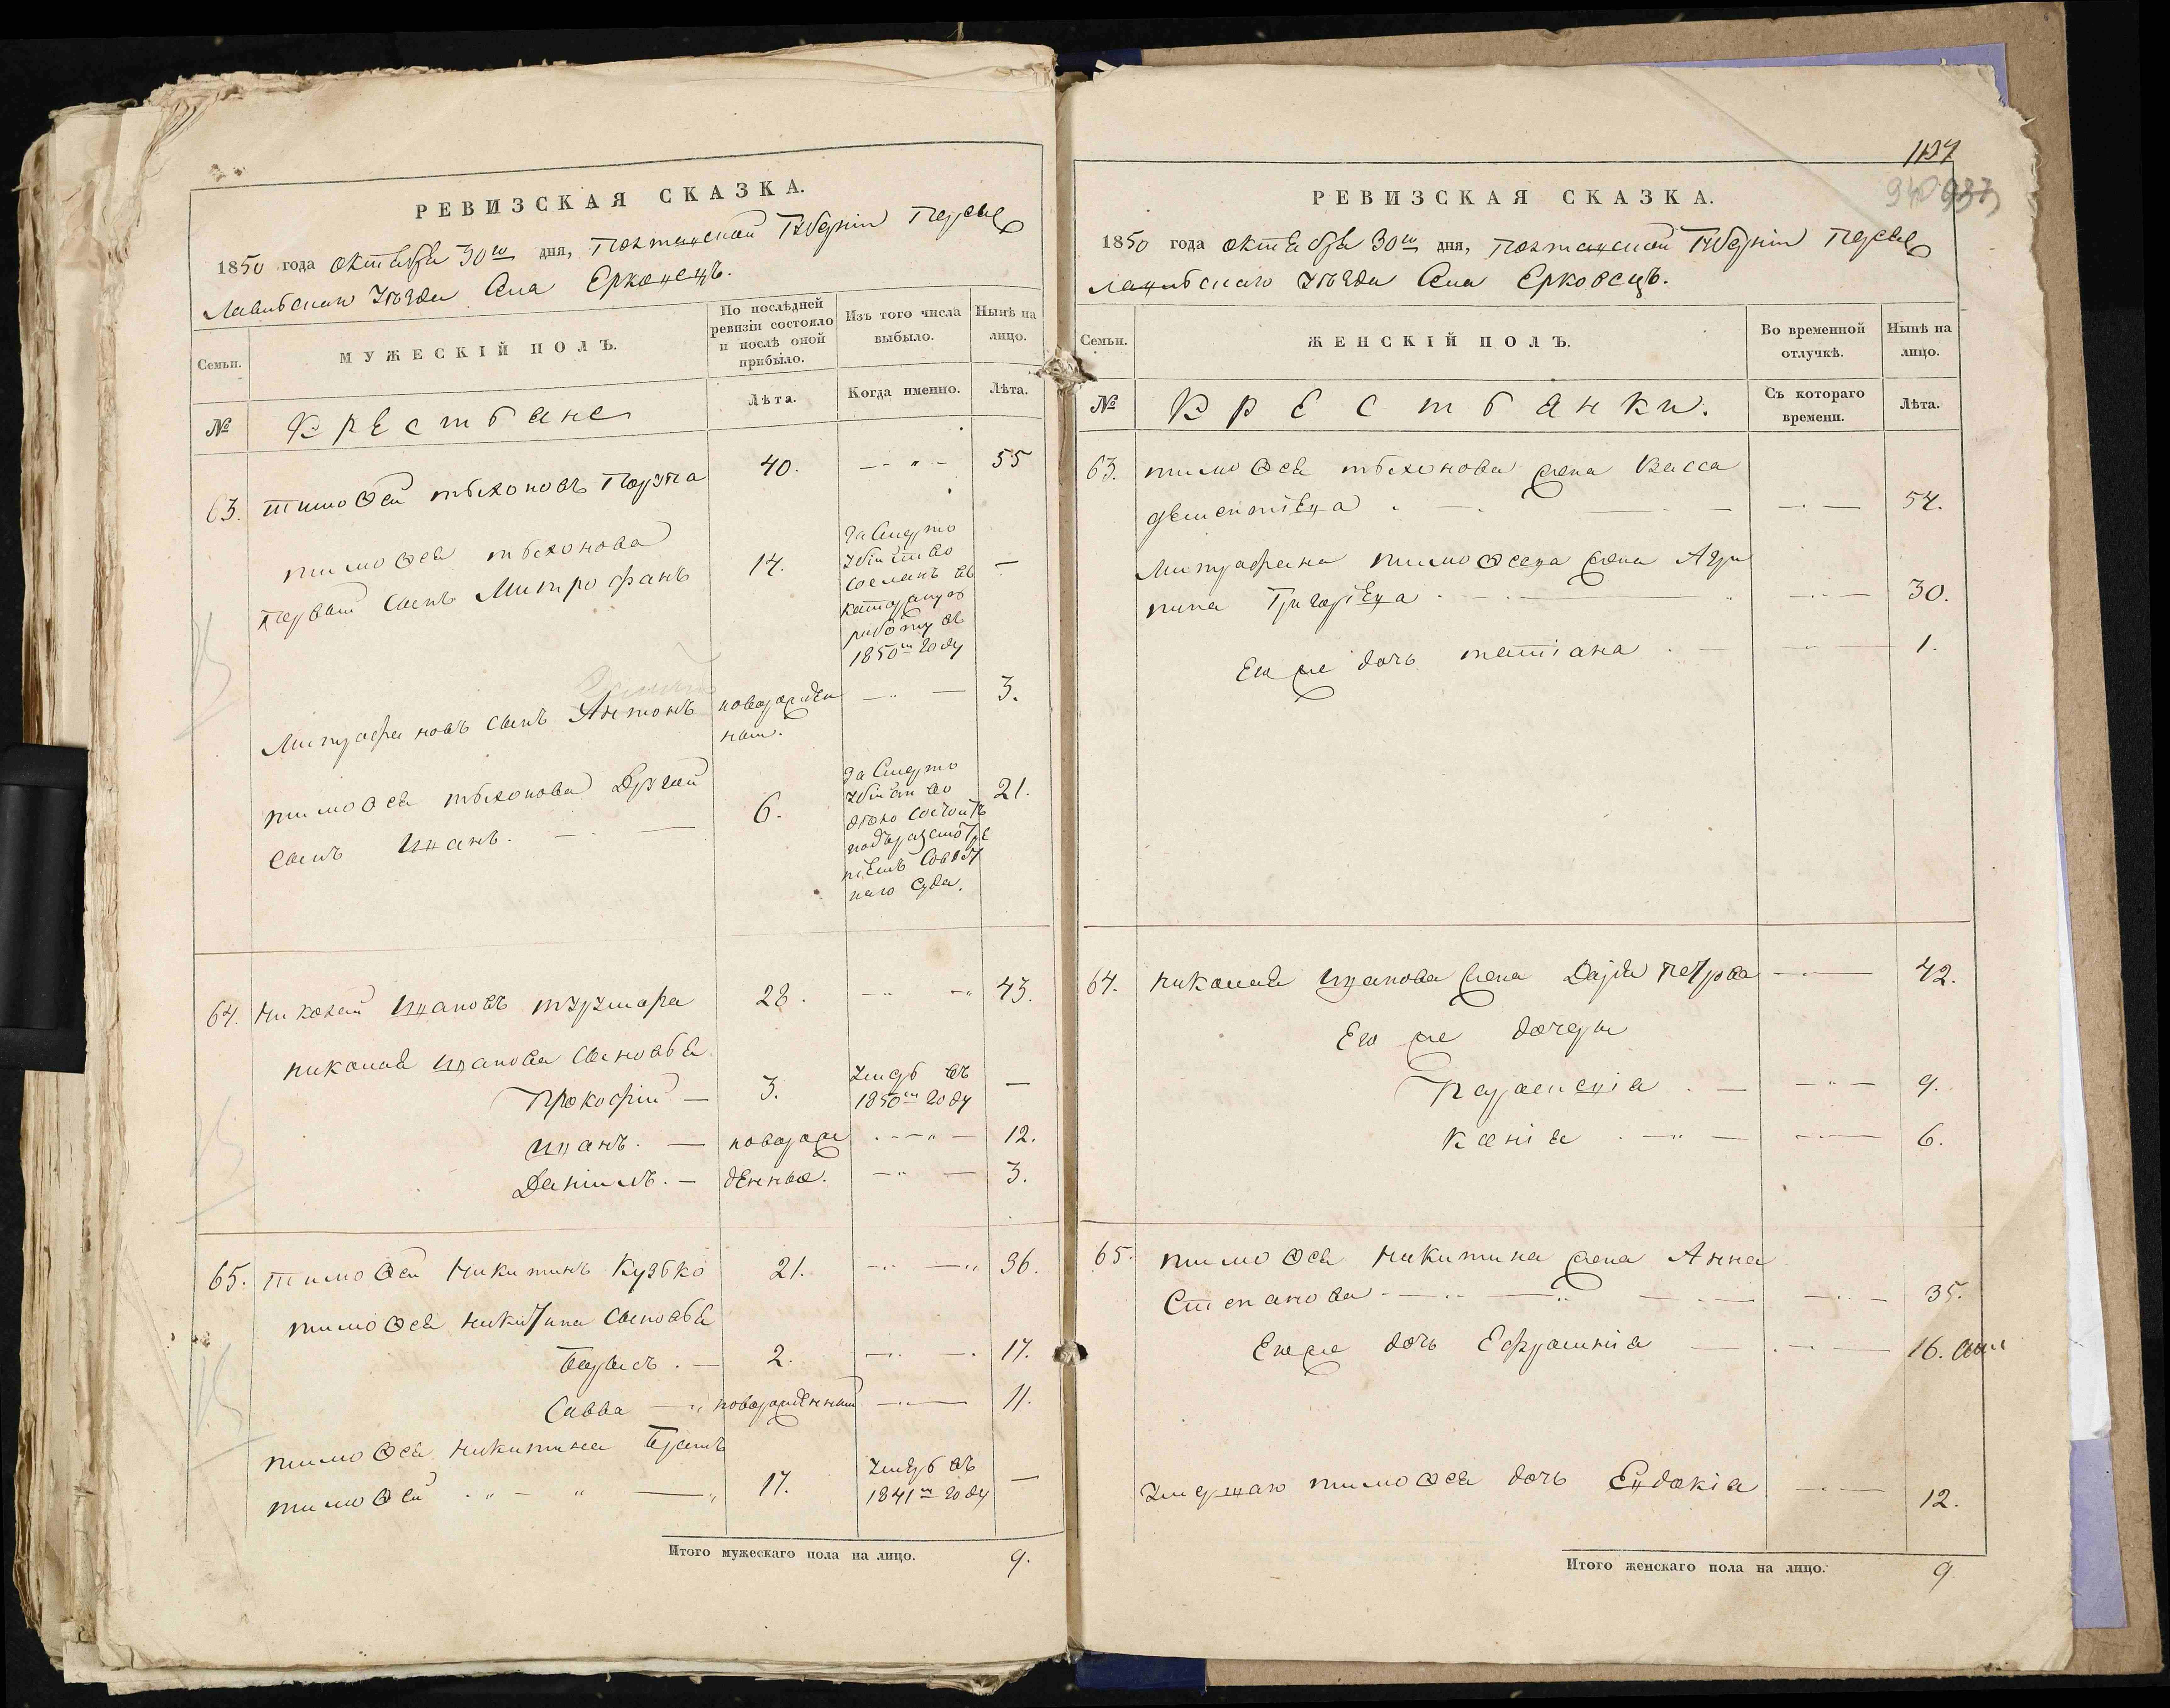 РЕВИЗСКАЯ СКАЗКА.
1850 года октября 30го дня, Полтавской Губерніи Переяс
лавьскаго Уѣзда Села Ерковецъ.
Семьи.
МУЖЕСКІЙ ПОЛЪ.
По послѣдней
ревизіи состояло
и послѣ оной
прибыло.
Изъ того числа
выбыло.
Нынѣ на
лицо.
№
Крестьяне
Лѣта.
Когда именно.
Лѣта.
63. Тимоѳей Тыхоновъ 40. 55
Тимоѳея Тыхонова
первый сынъ Митрофанъ 14. —
За смерто
убійство
сосланъ въ
каторжную
работу въ
1850м году
Митрофановъ сынъ Антонъ новорожден 3.
ный.
Тимоѳея Тыхонова Другой
сынъ Иванъ. 6. 21.
За смерто
убійство
состоитъ
подъ разсмотре
ніемъ
наго Суда.
64. Николай Ивановъ 28. 43.
Николая Иванова сыновья
Прокофій — 3. умеръ въ —
1850м году
Иванъ. — новорож 12.
Даніилъ. — денные. 3.
65. Тимоѳей Никитинъ Кузько 21. 36.
Тимоѳея Никитина сыновья
Борысъ. — 2. 17.
Савва — новорожденный 11.
Тимоѳея Никитина братъ
Тимоѳей 17. умеръ въ —
1841м году
Итого мужескаго пола на лицо. 9.
937
РЕВИЗСКАЯ СКАЗКА.
1850 года октября 30го дня, Полтавской Губерніи Переяс
лавьскаго Уѣзда Села Ерковецъ.
Семьи.
ЖЕНСКІЙ ПОЛЪ.
Во временной
отлучкѣ.
Нынѣ на
лицо.
№
Крестьянки.
Съ котораго
времени.
Лѣта.
63. Тимоѳея Тыхонова жена Васса
54.
Митрофана Тимоѳеева жена Агри
пина Григоріева 30.
Его же дочь Татіана 1.
64. Николая Иванова жена Дарья Петрова 42.
Его же дочери
Параскевія 9.
Ксенія 6.
65. Тимоѳея Никитина жена Анна
Степанова 35.
Его же дочь Ефросинія 16.
Умершаго Тимоѳея дочь Евдокія 12.
Итого женскаго пола на лицо. 9